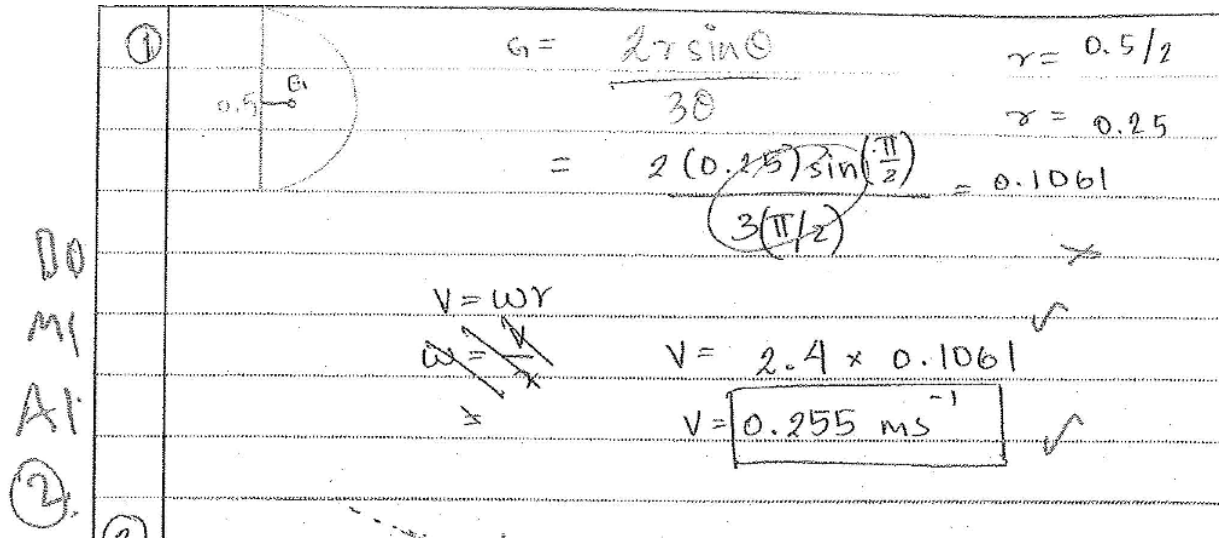 ①
G = 2r sinθ / 3θ
r = 0.5/2
0.5 G
r = 0.25
= 2(0.25) sin(π/2) / 3(π/2) = 0.1061
B0
M1
A1
②
V = ωr
ω = V/r
V = 2.4 × 0.1061
V = 0.255 ms⁻¹